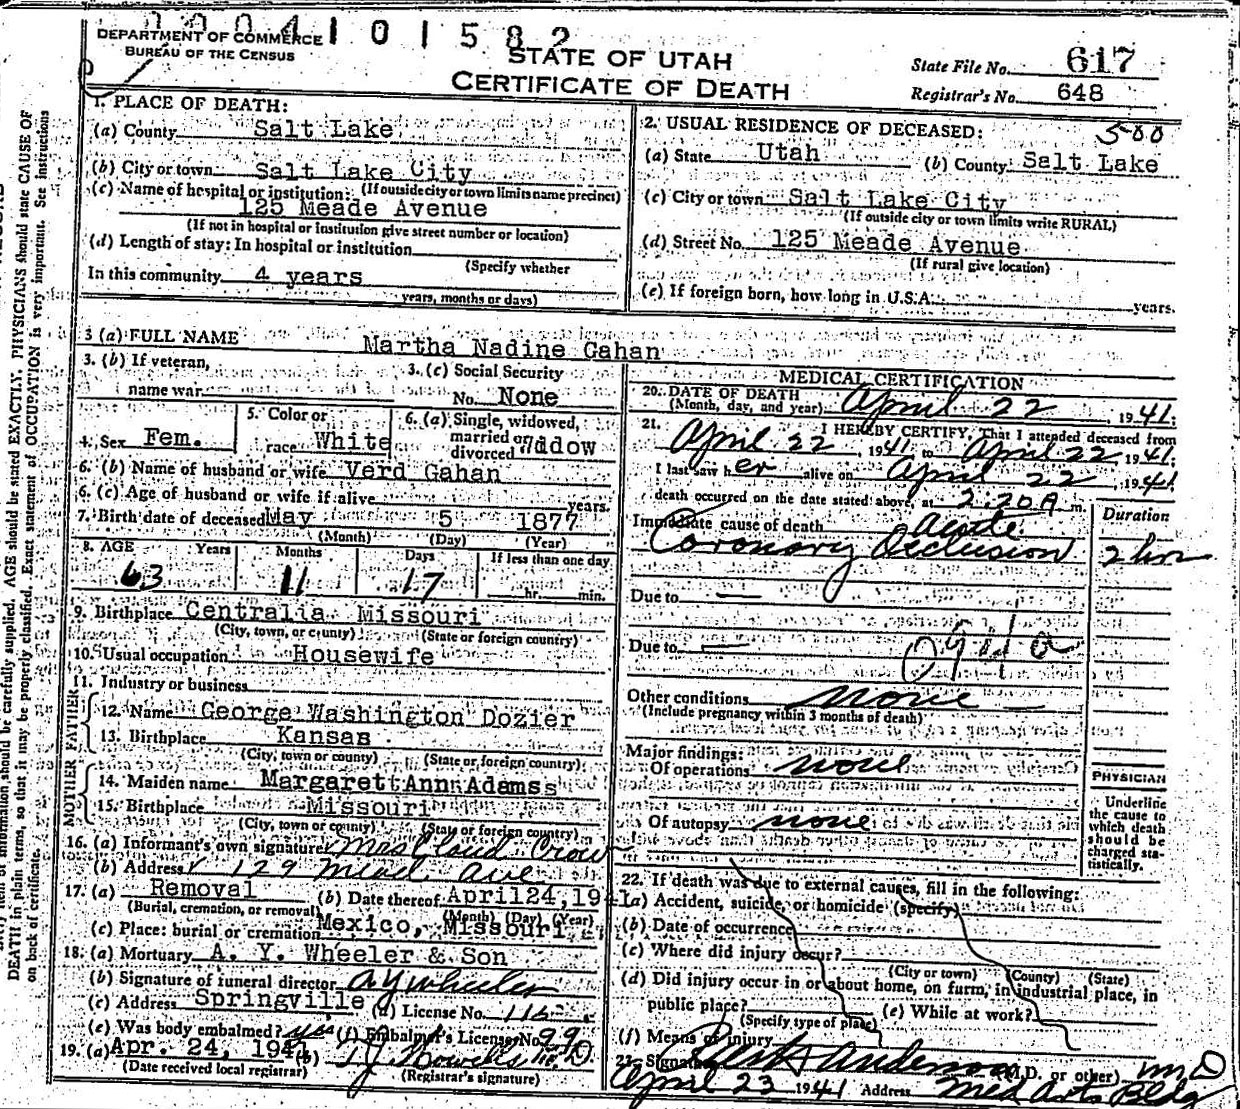 1004101582
DEPARTMENT OF COMMERCE
BUREAU OF THE CENSUS
STATE OF UTAH
CERTIFICATE OF DEATH
State File No. 617
Registrar's No. 648
1. PLACE OF DEATH:
(a) County Salt Lake
(b) City or town Salt Lake City
(If outside city or town limits name precinct)
(c) Name of hospital or institution:
125 Meade Avenue
(If not in hospital or institution give street number or location)
(d) Length of stay: In hospital or institution
(Specify whether
In this community 4 years
years, months or days)
2. USUAL RESIDENCE OF DECEASED: 500
(a) State Utah (b) County Salt Lake
(c) City or town Salt Lake City
(If outside city or town limits write RURAL)
(d) Street No. 125 Meade Avenue
(If rural give location)
(e) If foreign born, how long in U.S.A. years.
3 (a) FULL NAME Martha Nadine Gahan
3. (b) If veteran,
name war
3. (c) Social Security
No. None
4. Sex Fem.
5. Color or
race White
6. (a) Single, widowed,
married or
divorced Widow
6. (b) Name of husband or wife Verd Gahan
6. (c) Age of husband or wife if alive years.
7. Birth date of deceased May 5 1877
(Month) (Day) (Year)
8. AGE Years Months Days If less than one day
63 11 17 hr. min.
9. Birthplace Centralia Missouri
(City, town, or county) (State or foreign country)
10. Usual occupation Housewife
11. Industry or business
FATHER
12. Name George Washington Dozier
13. Birthplace Kansas
(City, town or county) (State or foreign country)
MOTHER
14. Maiden name Margarett Ann Adamss
15. Birthplace Missouri
(City, town or county) (State or foreign country)
16. (a) Informant's own signature Mrs Claud Crow
(b) Address 129 Mead Ave
17. (a) Removal (b) Date thereof April 24, 1941
(Burial, cremation, or removal) (Month) (Day) (Year)
(c) Place: burial or cremation Mexico, Missouri
18. (a) Mortuary A. Y. Wheeler & Son
(b) Signature of funeral director A Y Wheeler
(c) Address Springville (d) License No. 115
(e) Was body embalmed? yes (f) Embalmer's License No. 99
19. (a) Apr. 24, 1941 (b) M.D.
(Date received local registrar) (Registrar's signature)
MEDICAL CERTIFICATION
20. DATE OF DEATH
(Month, day, and year) April 22, 1941.
21. I HEREBY CERTIFY, That I attended deceased from
April 22, 1941 to April 22, 1941.
I last saw her alive on April 22, 1941.
death occurred on the date stated above, at 2:20 A m.
Duration
Immediate cause of death Acute
Coronary Occlusion 2 hrs
Due to —
Due to — 094a
Other conditions none —
(Include pregnancy within 3 months of death)
Major findings:
Of operations none
Of autopsy none
PHYSICIAN
Underline
the cause to
which death
should be
charged sta-
tistically.
22. If death was due to external causes, fill in the following:
(a) Accident, suicide, or homicide (specify)
(b) Date of occurrence
(c) Where did injury occur?
(City or town) (County) (State)
(d) Did injury occur in or about home, on farm, in industrial place, in
public place? (e) While at work?
(Specify type of place)
(f) Means of injury
23. Signature Anderson (M.D. or other) M D
April 23 1941 Address Med Arts Bldg
information should be carefully supplied. AGE should be stated EXACTLY. PHYSICIANS should state CAUSE OF
DEATH in plain terms, so that it may be properly classified. Exact statement of OCCUPATION is very important. See instructions
on back of certificate.